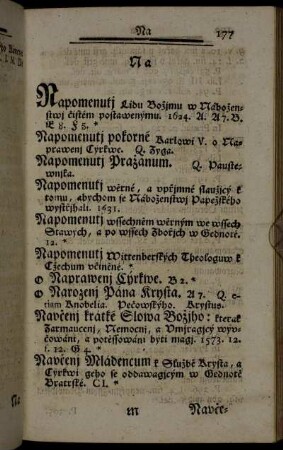 Na
177
Na
Napomenutj Lidu Božjmu w Nábožen-
stwj čistém postawenýmu. 1624. A. A7. B.
E 8. F 5. *
Napomenutj pokorné Karlowi V. o Na-
prawenj Cýrkwe. Q. Zyga.
Napomenutj Pražanum. Q. Pauste-
wnjka.
Napomenutj wěrné, a vpřjmné slaužjcý k
tomu, abychom se Náboženstwj Papežského
wystřjhali. 1631.
Napomenutj wssechněm wěrným we wssech
Stawých, a po wssech Zbořjch w Gednotě.
12. *
Napomenutj Wittenberských Theologuw k
Čzechum včiněné. *
Naprawenj Cýrkwe. B 2. *
Narozenj Pána Krysta. A 7. Q. e-
tium Knobelia. Pečowskýho. Krystus.
Naučenj krátké Slowa Božjho: kterak
Farmaucenj, Nemocnj, a Vmjragjcý wyv-
čowáni, a potěssowáni býti magj. 1573. 12.
f. 12. G 4. *
Naučenj Mládencum k Službě Krysta, a
Cýrkwi geho se oddawagjcým w Gednotě
Bratrské. C I. *
M
Nauče-
Na